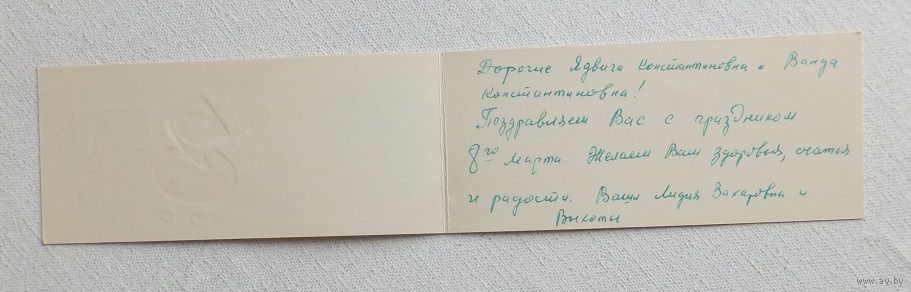 Дорогие Ядвига Константиновна и Ванда
Константиновна!
Поздравляем Вас с праздником
8го марта. Желаем Вам здоровья, счастья
и радости. Ваши Лидия Захаровна и
www.ay.by